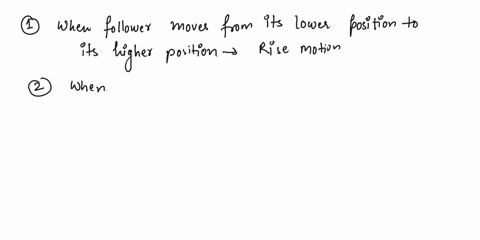 ① When follower moves from its lower position to
its higher position → Rise motion
② When